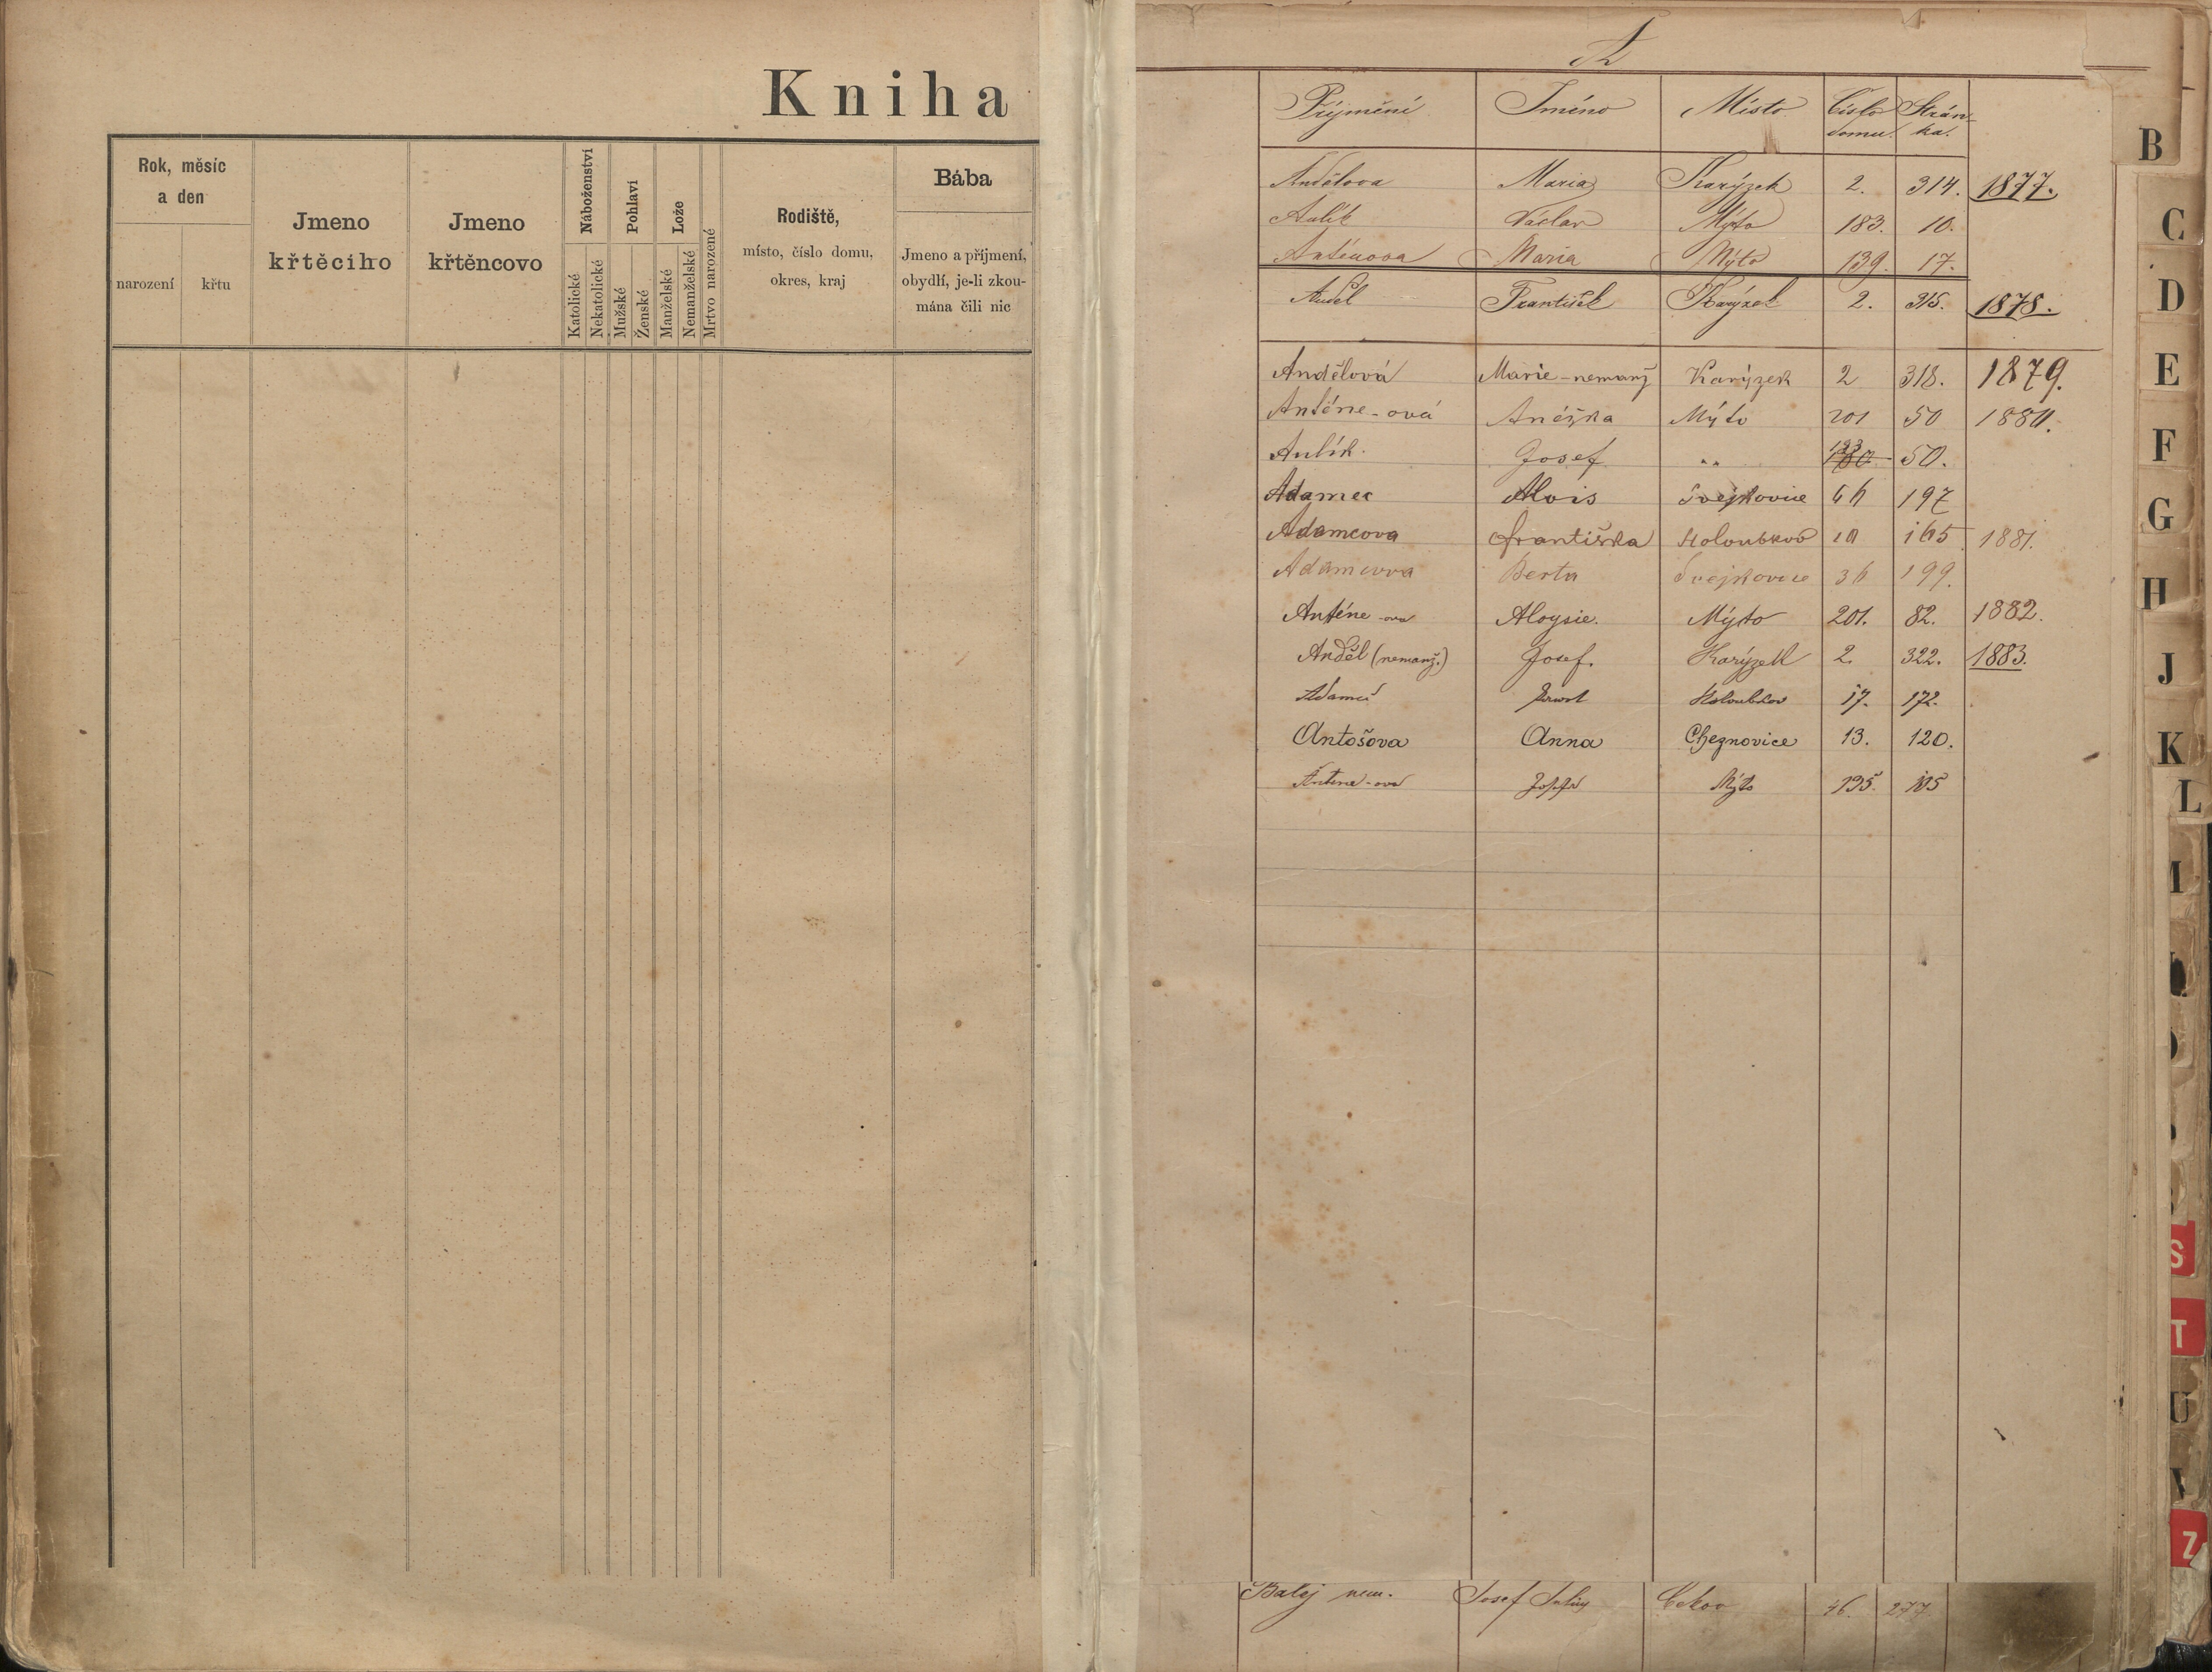 Kniha
Rok, měsíc
a den
narození křtu
Jmeno
křtěcího
Jmeno
křtěncovo
Náboženství
Katolické
Nekatolické
Pohlaví
Mužské
Ženské
Lože
Manželské
Nemanželské
Mrtvo narozené
Rodiště,
místo, číslo domu,
okres, kraj
Bába
Jmeno a příjmení,
obydlí, je-li zkou-
mána čili nic
A
Příjmění Jméno Místo Číslo domu. Strán-ka.
Andělova Maria Karýzek 2. 314. 1877.
Aulík Václav Mýto 183. 10.
Anténova Maria Mýto 139. 17.
Anděl František Karýzek 2. 315. 1878.
Andělová Marie-nemanž Karýzek 2 318. 1879.
Anténe-ová Anéžka Mýto 201 50 1880.
Aulík. Josef „ 183 50.
Adamec Alois Svejkovice 46 197
Adamcova Františka Holoubkov 10 165 1881.
Adamcova Berta Svejkovice 36 199.
Anténe-ova Aloysie. Mýto 201. 82. 1882.
Anděl (nemanž.) Josef. Karýzek 2. 322. 1883.
Adamec Holoubkov 17. 172.
Antošova Anna Cheznovice 13. 120.
Antene-ova Mýto 195. 105
Josef Cekov 46. 277
B
C
D
E
F
G
H
J
K
L
M
S
T
U
V
Z